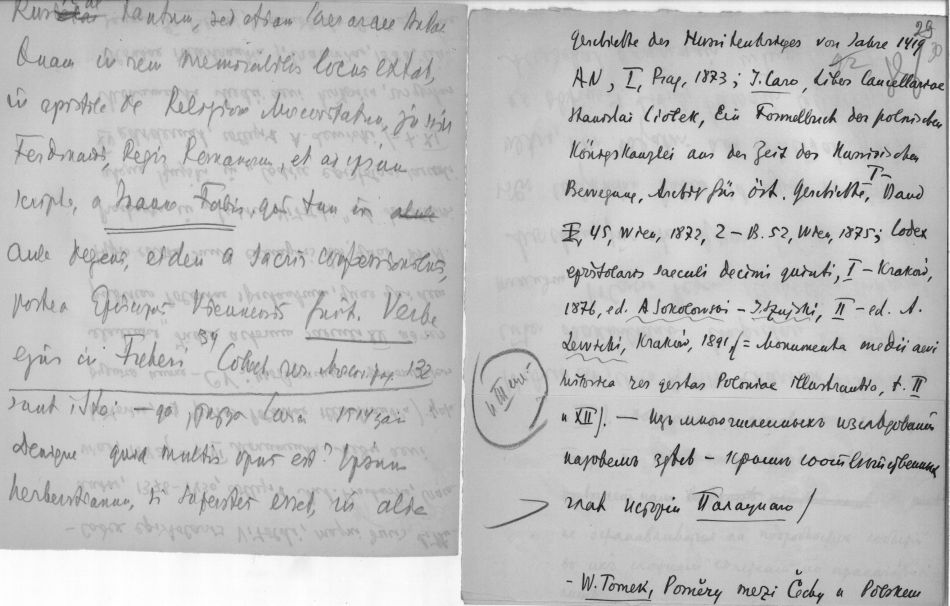 tantum, sed etiam Caesareae
Quam in rem memorabilis locus extat,
in epistola de Religione Moscovitarum, jussu
Ferdinandi Regis Romanorum, et ad ipsum
scripta, a Joanne Fabro qui tum in
Aula degens, et dein a sacris confessionibus,
postea Episcopus Viennensis fuit. Verba
ejus in
sunt
Denique quid multis opus est? Ipsum
Herberstenum, si superstes esset, in alta
29
Geschichte des Hussitenkrieges von Jahre 1419
AN, I, Prag, 1873; J. Caro, Liber Cancellariae
Stanislai Ciolek, Ein Formelbuch der polnischen
Königskanzlei aus der Zeit der Hussitischen
Bewegung, Archiv für öst. Geschichte, I – Band
45, Wien, 1872, 2 – B. 52, Wien, 1875; Codex
epistolaris saeculi decimi quinti, I – Kraków,
1876, ed. A. Sokołowski – J. Szujski, II – ed. A.
Lewicki, Kraków, 1891 = Monumenta medii aevi
historica res gestas Poloniae illustrantia, t. II
и XII). — Изъ многочисленныхъ изслѣдованій
назовемъ здѣсь – кромѣ соотвѣтственныхъ
главъ исторіи Палацкаго /
- W. Tomek, Poměry mezi Čechy a Polskem